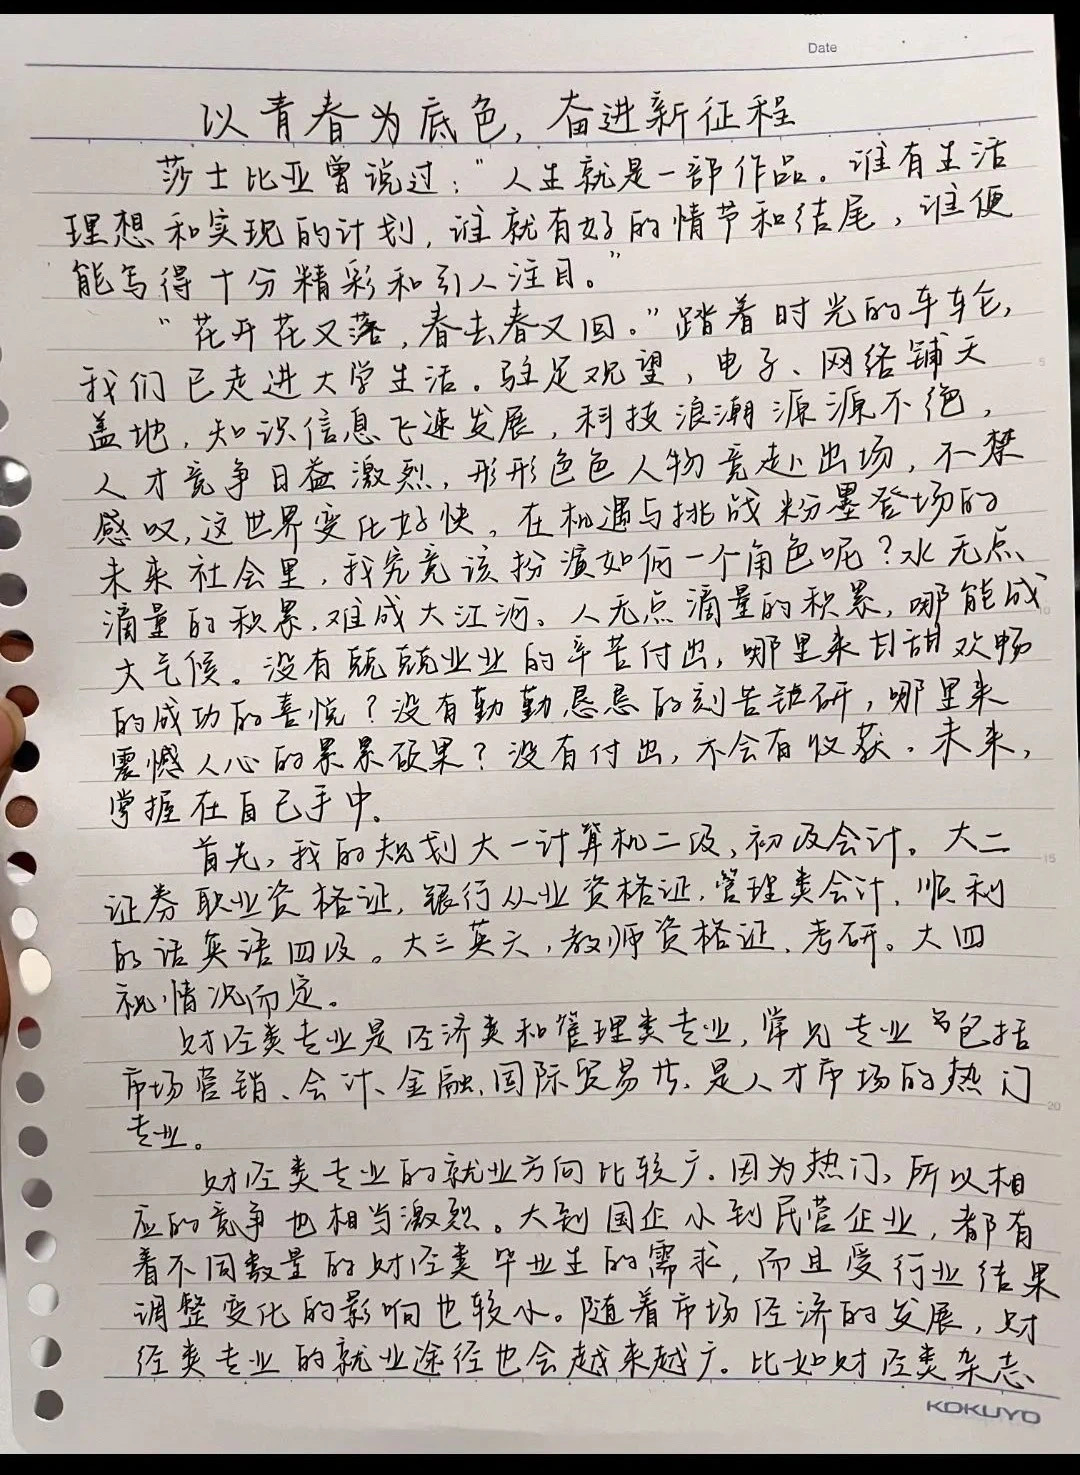 Date
以青春为底色，奋进新征程
莎士比亚曾说过：“人生就是一部作品。谁有生活
理想和实现的计划，谁就有好的情节和结尾，谁便
能写得十分精彩和引人注目。”
“花开花又落，春去春又回。”踏着时光的车轮，
我们已走进大学生活。驻足观望，电子、网络铺天
盖地，知识信息飞速发展，科技浪潮源源不绝，
人才竞争日益激烈，形形色色人物竞赴出场，不禁
感叹，这世界变化好快。在机遇与挑战粉墨登场的
未来社会里，我究竟该扮演如何一个角色呢？水无点
滴量的积累，难成大江河。人无点滴量的积累，哪能成
大气候。没有兢兢业业的辛苦付出，哪里来甘甜欢畅
的成功的喜悦？没有勤勤恳恳的刻苦钻研，哪里来
震憾人心的累累硕果？没有付出，不会有收获。未来，
掌握在自己手中。
首先，我的规划大一计算机二级、初级会计。大二
证券职业资格证，银行从业资格证，管理类会计，顺利
的话英语四级。大三英六，教师资格证、考研。大四
视情况而定。
财经类专业是经济类和管理类专业，常见专业包括
市场营销、会计、金融、国际贸易 是人才市场的热门
专业。
财经类专业的就业方向比较广。因为热门，所以相
应的竞争也相当激烈。大到国企小到民营企业，都有
着不同数量的财经类毕业生的需求，而且受行业结果
调整变化的影响也较小。随着市场经济的发展，财
经类专业的就业途径也会越来越广。比如财经类杂志、
KOKUYO
5
10
15
20